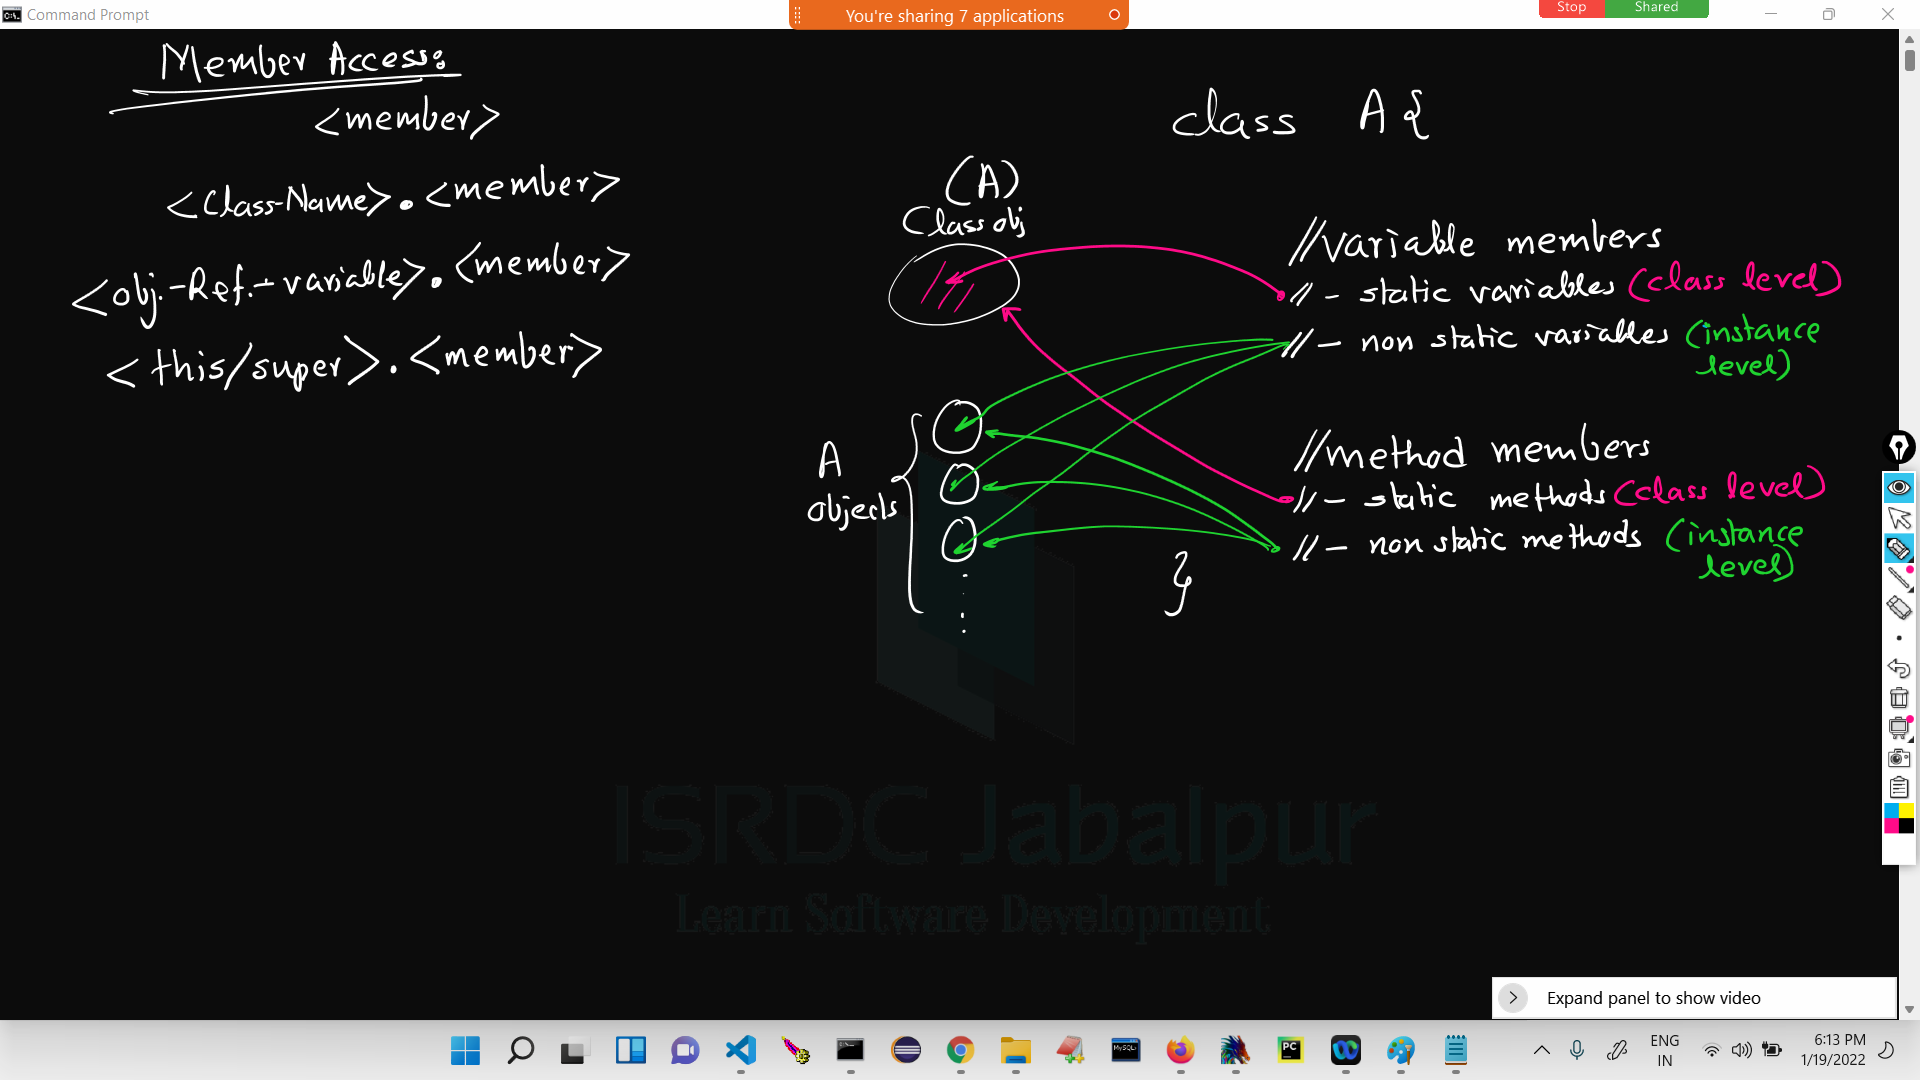 Command Prompt
You're sharing 7 applications
Stop
Shared
Member Access:
<member>
<Class-Name>.<member>
<obj.-Ref.-variable>.<member>
<this/super>.<member>
class A{
(A)
Class obj
//variable members
// - static variables (class level)
// - non static variables (instance
level)
A
objects
//method members
// - static methods (class level)
// - non static methods (instance
level)
}
ISRDC Jabalpur
Learn Software Development
Expand panel to show video
MySQL
PC
ENG
IN
6:13 PM
1/19/2022